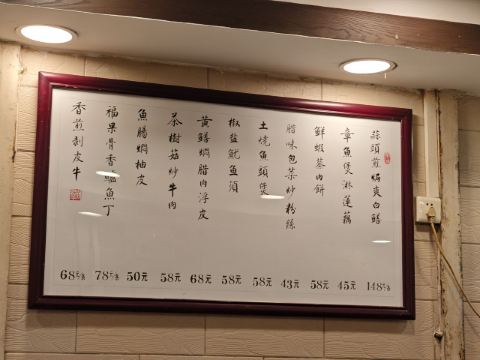 蒜頭煎焗爽白鱔
148元
章魚煲淋蓮藕
45元
鮮蝦蒸肉餅
58元
腊味包菜炒粉絲
43元
土燒魚頭煲
58元
椒盐魷鱼須
58元
黃鱔焗腊肉浮皮
68元
茶樹菇炒牛肉
58元
魚腸焗柚皮
50元
福樂骨香魚丁
78元
香煎刮皮牛
68元